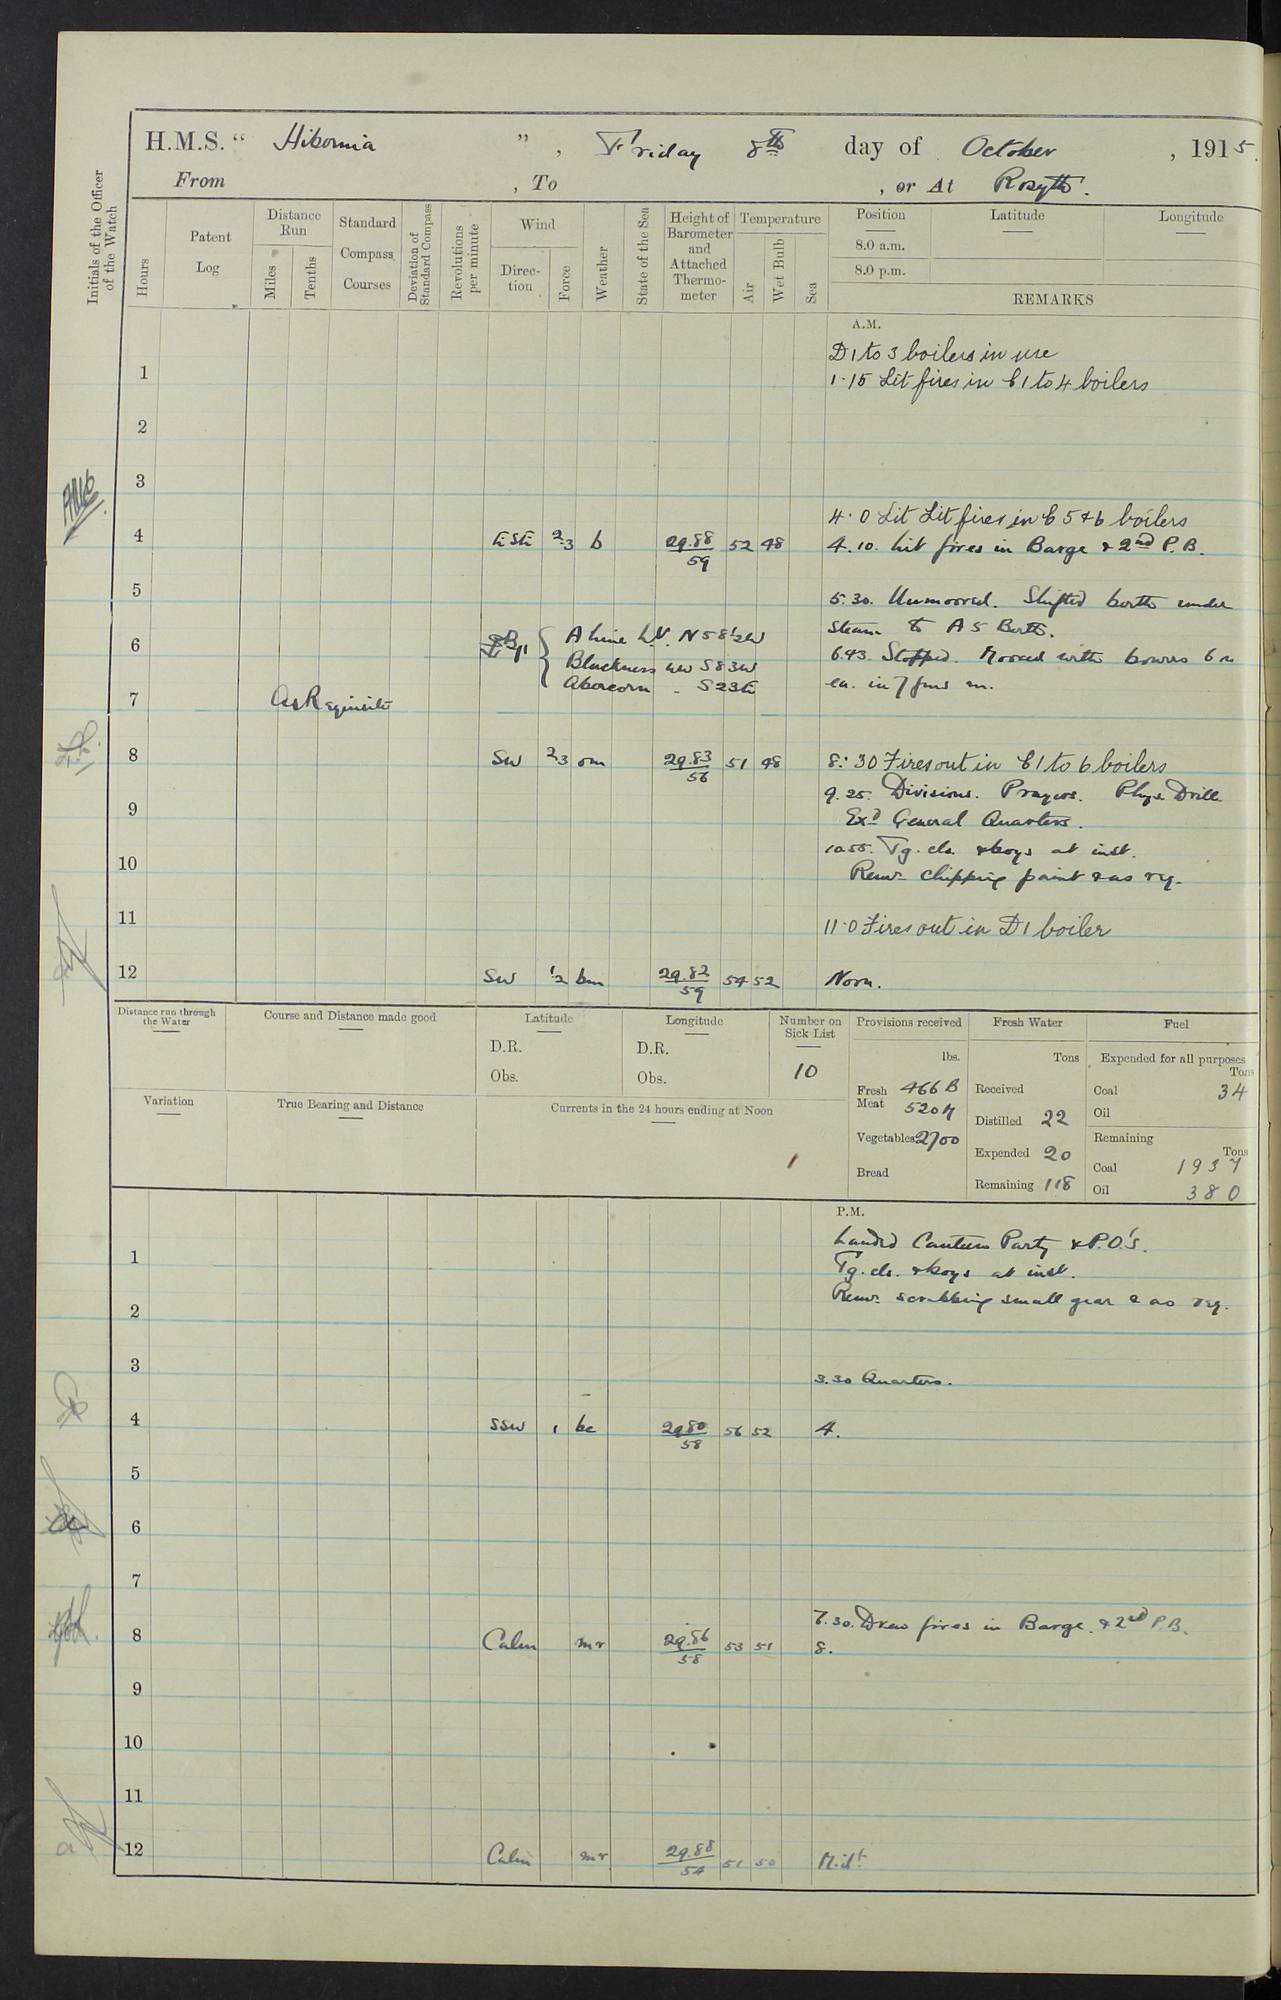 H.M.S. " Hibernia " , Friday 8th day of October , 1915.
From , To , or At Rosyth.
Initials of the Officer of the Watch
Hours
Patent Log
Distance Run
Miles
Tenths
Standard Compass Courses
Deviation of Standard Compass
Revolutions per minute
Wind
Direction
Force
Weather
State of the Sea
Height of Barometer and Attached Thermometer
Temperature
Air
Wet Bulb
Sea
Position
Latitude
Longitude
8.0 a.m.
8.0 p.m.
REMARKS
A.M.
D 1 to 3 boilers in use
1 1.15 Lit fires in C 1 to 4 boilers
2
3
4.0 Lit Lit fires in C 5 & 6 boilers
4 ESE 2-3 b 29.88 52 48 4.10. Lit fires in Barge & 2nd P.B.
59
5 5.30. Unmoored. Shifted berth under
A line L.V. N 58½W steam to A 5 Berth.
6 Blackness S 83W 6.43. Stopped. Moored with bowers 6
Abercorn - S 23E ea. in 7 fms m.
7 As Requisite
8 SW 2-3 om 29.83 51 48 8.30 Fires out in C 1 to 6 boilers
56
9.25. Divisions. Prayers. Phys Drill
9 Exd General Quarters.
10.55. Tg. cls. & boys at inst.
10 Remr chipping paint & as rq.
11 11.0 Fires out in D 1 boiler
12 SW 1-2 bm 29.82 54 52 Noon.
59
Distance run through the Water
Course and Distance made good
Latitude
D.R.
Obs.
Longitude
D.R.
Obs.
Number on Sick List
10
Variation
True Bearing and Distance
Currents in the 24 hours ending at Noon
Provisions received
lbs.
Fresh Meat 466 B
520 M
Vegetables 2700
Bread
Fresh Water
Tons
Received
Distilled 22
Expended 20
Remaining 118
Fuel
Expended for all purposes
Tons
Coal 34
Oil
Remaining
Tons
Coal 1937
Oil 380
P.M.
Landed Canteen Party & P.O.'s.
1 Tg. cls. & boys at inst.
2 Remr scrubbing small gear & as rq.
3 3.30 Quarters.
4 SSW 1 bc 29.80 56 52 4.
58
5
6
7
7.30. Drew fires in Barge & 2nd P.B.
8 Calm mr 29.86 53 51 8.
58
9
10
11
12 Calm mr 29.88 51 50 Midt
54